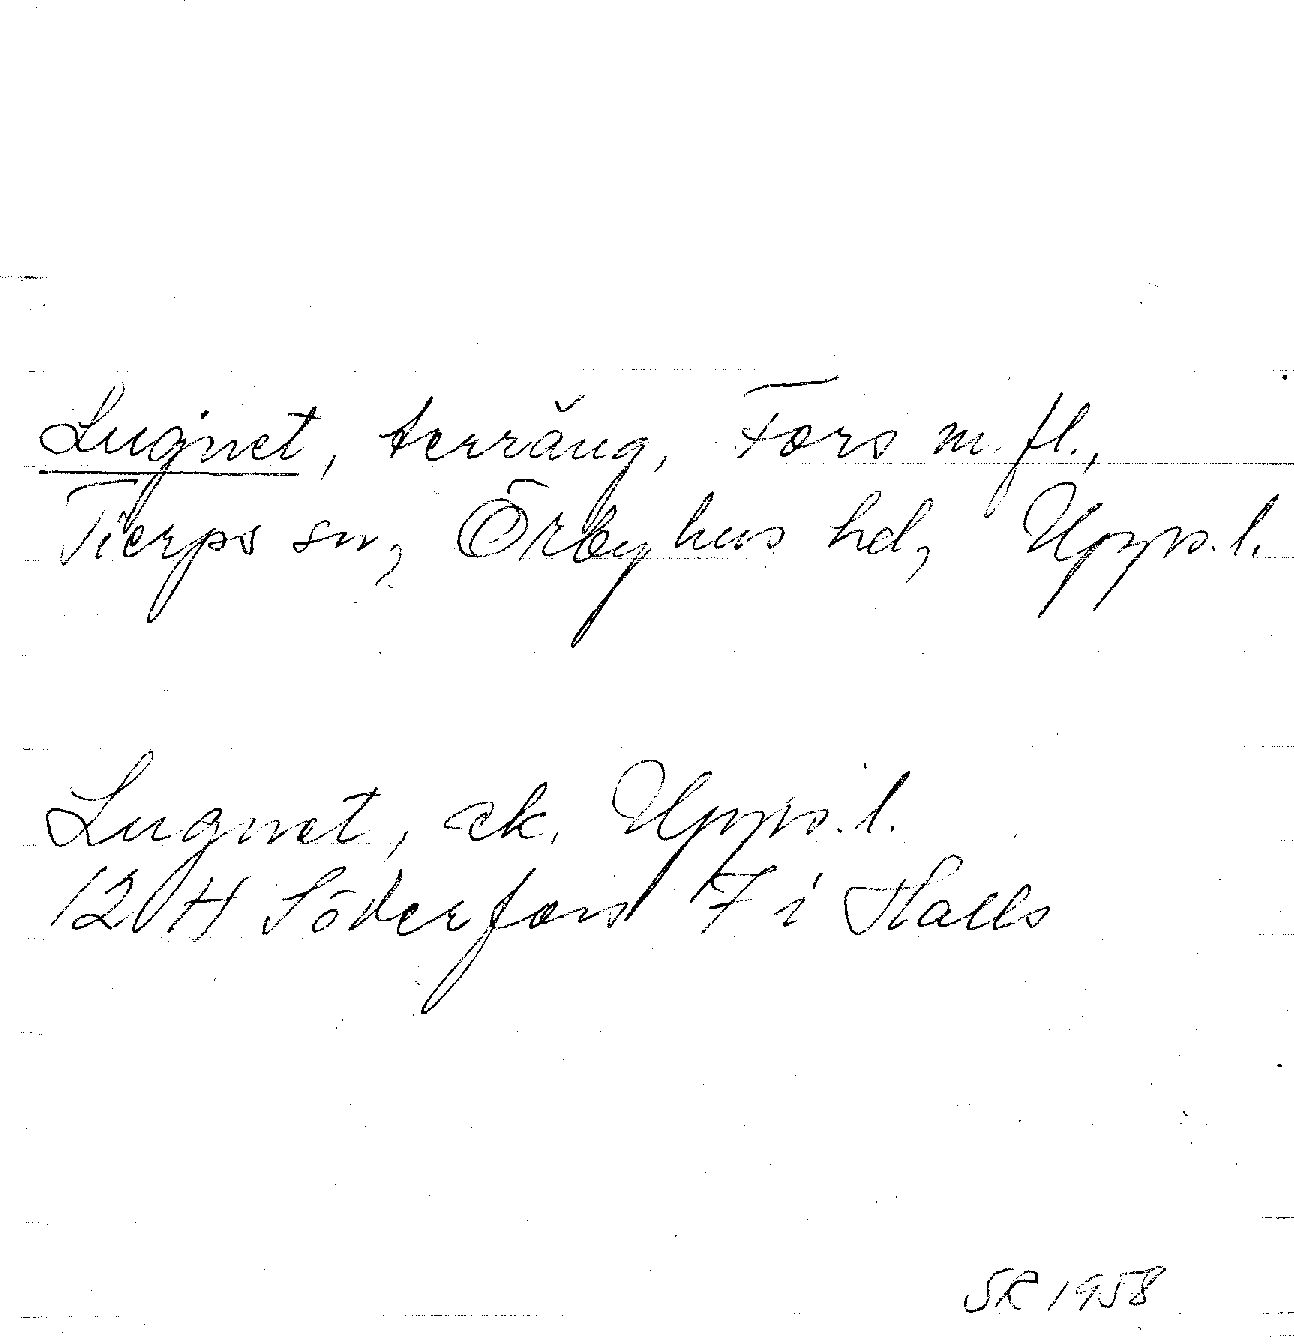 Lugnet, terräng, Fors m. fl.,
Tierps sn, Örbyhus hd, Upps. l.
Lugnet, ek. Upps. l.
12 H Söderfors 7 i Halls
SR 1958